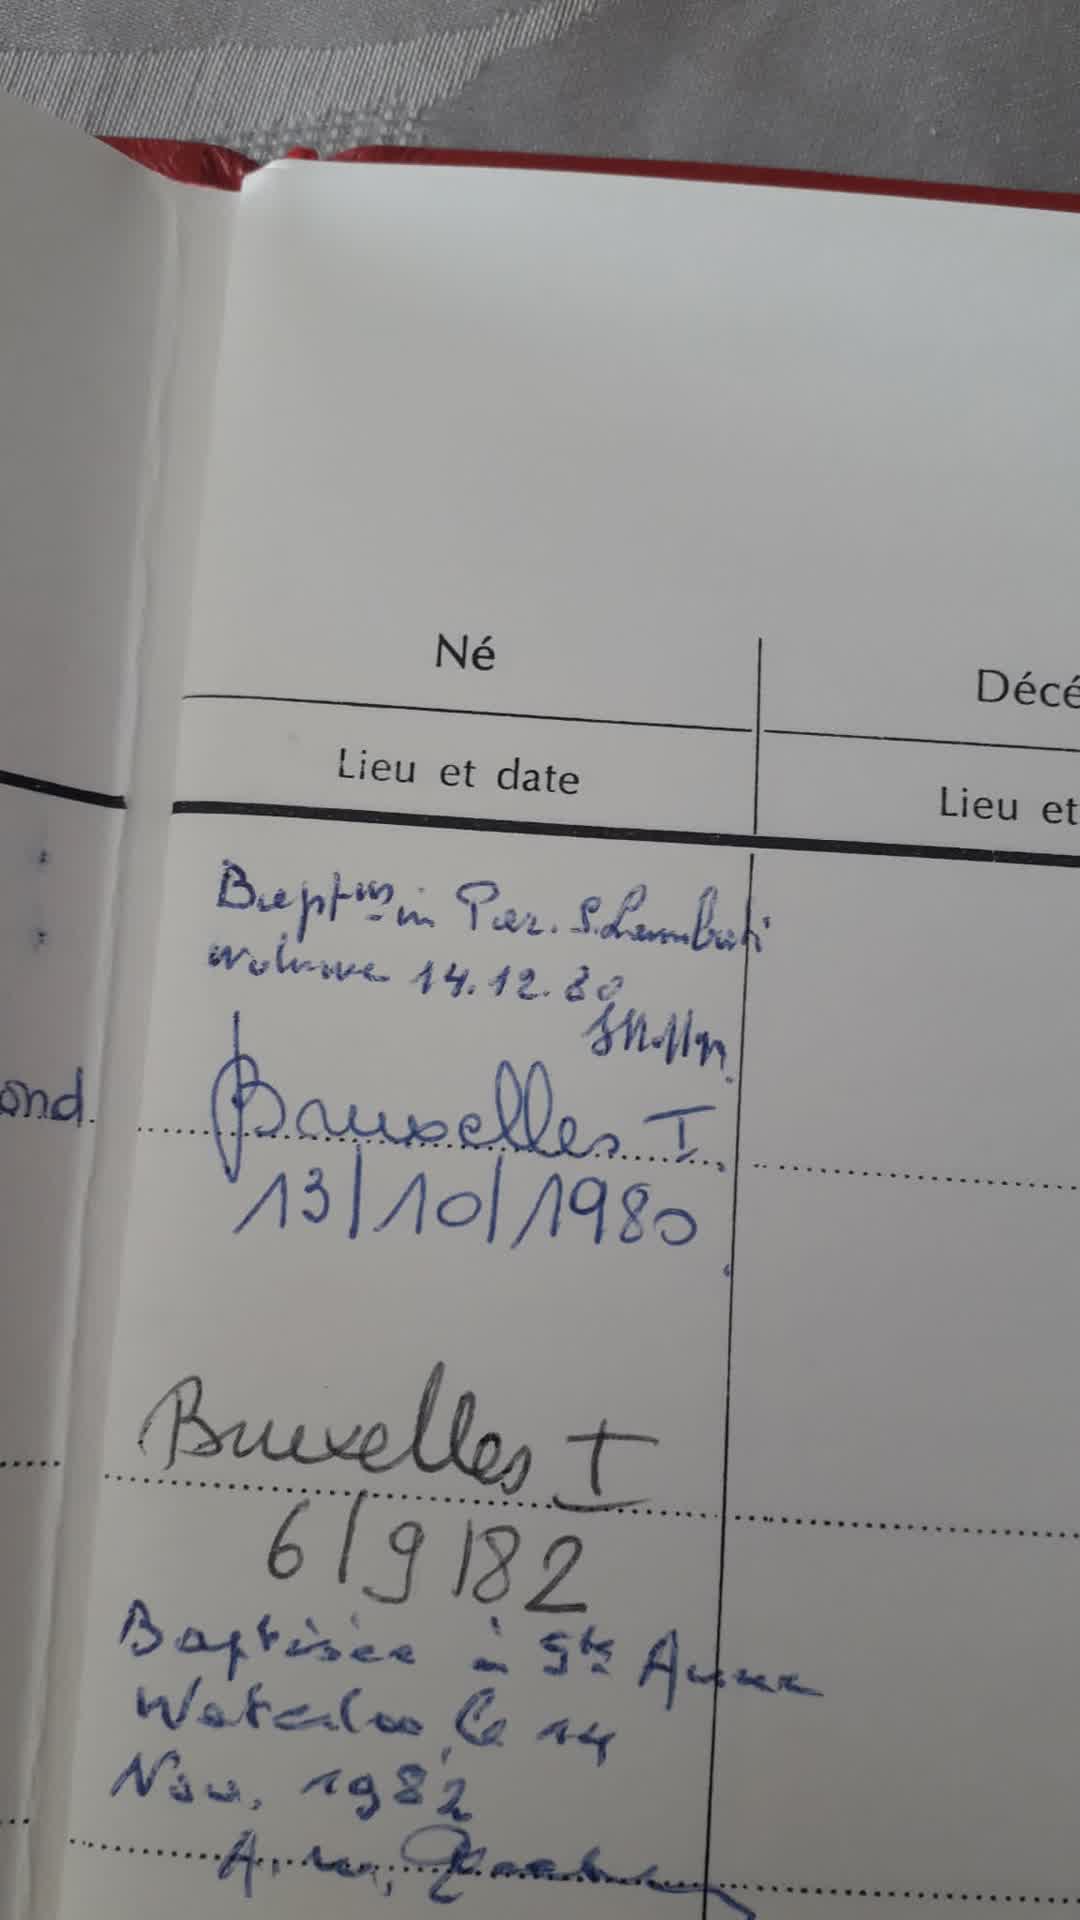 Né
Décé
Lieu et date
Lieu et
Bapt in Par. S. Lamberti
Woluwe 14.12.80
ond.
Bruxelles I.
13/10/1980
Bruxelles I
6/9/82
Baptisée à Ste Anne
Waterloo, le 14
Nov. 1982